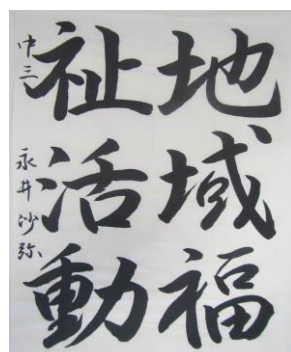 地域福
祉活動
中三 永井沙弥